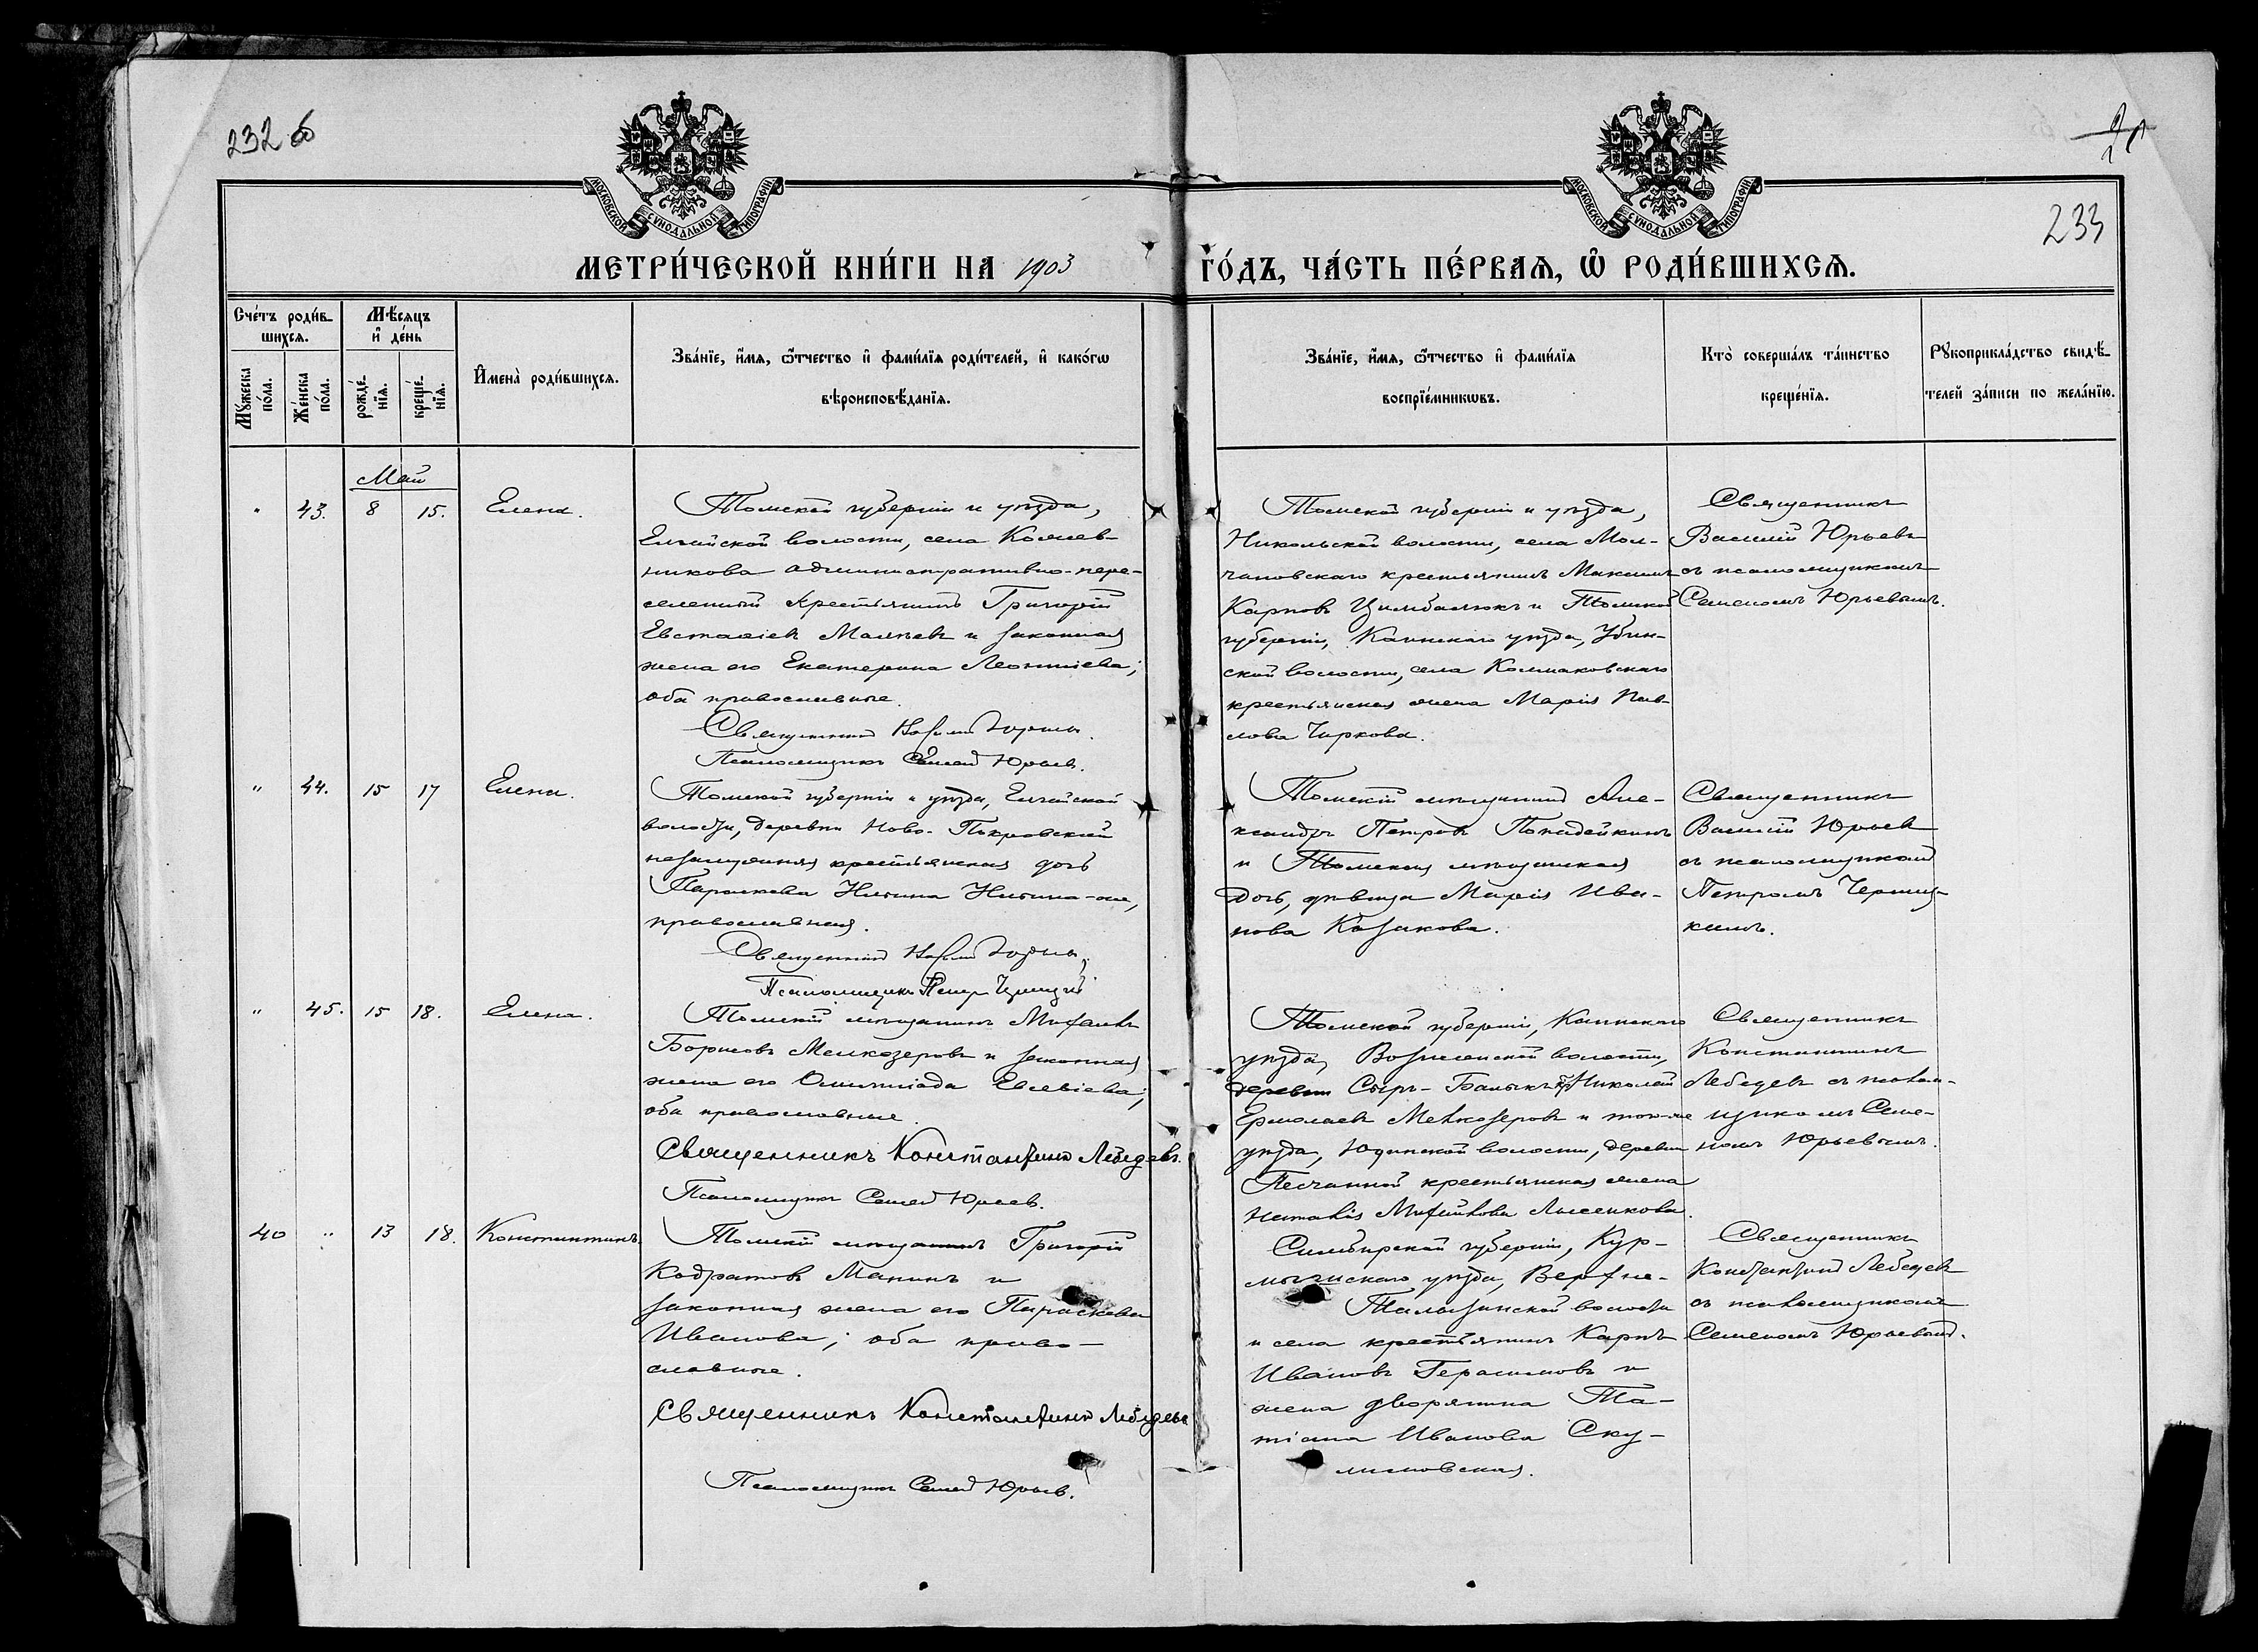 232 об
233
МОСКОВСКОЙ СУНОДАЛЬНОЙ ТИПОГРАФІИ.
МОСКОВСКОЙ СУНОДАЛЬНОЙ ТИПОГРАФІИ.
МЕТРИ́ЧЕСКОЙ КНИ́ГИ НА 1903 ГО́ДЪ, ЧА́СТЬ ПЕ́РВАѦ, Ѡ҆ РОДИ́ВШИХСѦ.
Сче́тъ роди́в-
шихсѧ.
Мꙋ́жеска по́ла.
Же́нска по́ла.
Мѣ́сѧцъ
и҆ де́нь
рожде́-нїѧ.
креще́-нїѧ.
И҆мена̀ роди́вшихсѧ.
Зва́нїе, и҆́мѧ, ѻ҆́тчество и҆ фами́лїѧ роди́телей, и҆ како́гѡ
вѣроисповѣ́данїѧ.
Зва́нїе, и҆́мѧ, ѻ҆́тчество и҆ фами́лїѧ
воспрїе́мникѡвъ.
Кто̀ соверша́лъ та́инство
креще́нїѧ.
Рꙋкоприкла́дство свидѣ́-
телей за́писи по жела́нїю.
Май
" 43. 8 15. Елена.
Томской губерніи и уѣзда,
Елгайской волости, села Кожев-
никова административно-пере-
селенный крестьянинъ Григорій
Евстафіевъ и законная
жена его Екатерина Леонтіева;
оба православные.
Священникъ Василій Юрьевъ.
Псаломщикъ Семенъ Юрьевъ.
Томской губерніи и уѣзда,
Никольской волости, села Мол-
чановскаго крестьянинъ Максимъ
Карповъ Цимбалюкъ и Томской
губерніи, Каинскаго уѣзда, Убин-
ской волости, села Колмаковскаго
крестьянская жена Марія Пав-
лова Чиркова.
Священникъ
Василій Юрьевъ
съ псаломщикомъ
Семеномъ Юрьевымъ.
" 44. 15 17 Елена.
Томской губерніи и уѣзда, Елгайской
волости, деревни Ново-Покровской
незамужняя крестьянская дочь
Параскева
православная.
Священникъ Василій Юрьевъ.
Псаломщикъ Петръ
Томскій мѣщанинъ Але-
ксандръ Петровъ
и Томская мѣщанская
дочь, дѣвица Марія Ива-
нова Казакова.
Священникъ
Василій Юрьевъ
съ псаломщикомъ
Петромъ
" 45. 15 18. Елена.
Томскій мѣщанинъ Михаилъ
Борисовъ Мелкозеровъ и законная
жена его Олимпіада Евсевіева;
оба православные.
Священникъ Константинъ Лебедевъ.
Псаломщикъ Семенъ Юрьевъ.
Томской губерніи, Каинскаго
уѣзда, Вознесенской волости,
деревни Сыръ-Балыкъ Николай
Ермолаевъ Мелкозеровъ и того-же
уѣзда, Юдинской волости, деревни
Песчанной крестьянская жена
Наталія Михайлова Лысенкова.
Священникъ
Константинъ
Лебедевъ съ псалом-
щикомъ Семе-
номъ Юрьевымъ.
40 " 13 18. Константинъ.
Томскій мѣщанинъ Григорій
Кодратовъ Манинъ и
законная жена его Параскева
Иванова; оба право-
славные.
Священникъ Константинъ Лебедевъ
Псаломщикъ Семенъ Юрьевъ.
Симбирской губерніи, Кур-
мышскаго уѣзда, Верхне-
Талызинской волости
и села крестьянинъ Карпъ
Ивановъ Герасимовъ и
жена дворянина Та-
тіана Иванова
Священникъ
Константинъ Лебедевъ
съ псаломщикомъ
Семеномъ Юрьевымъ.